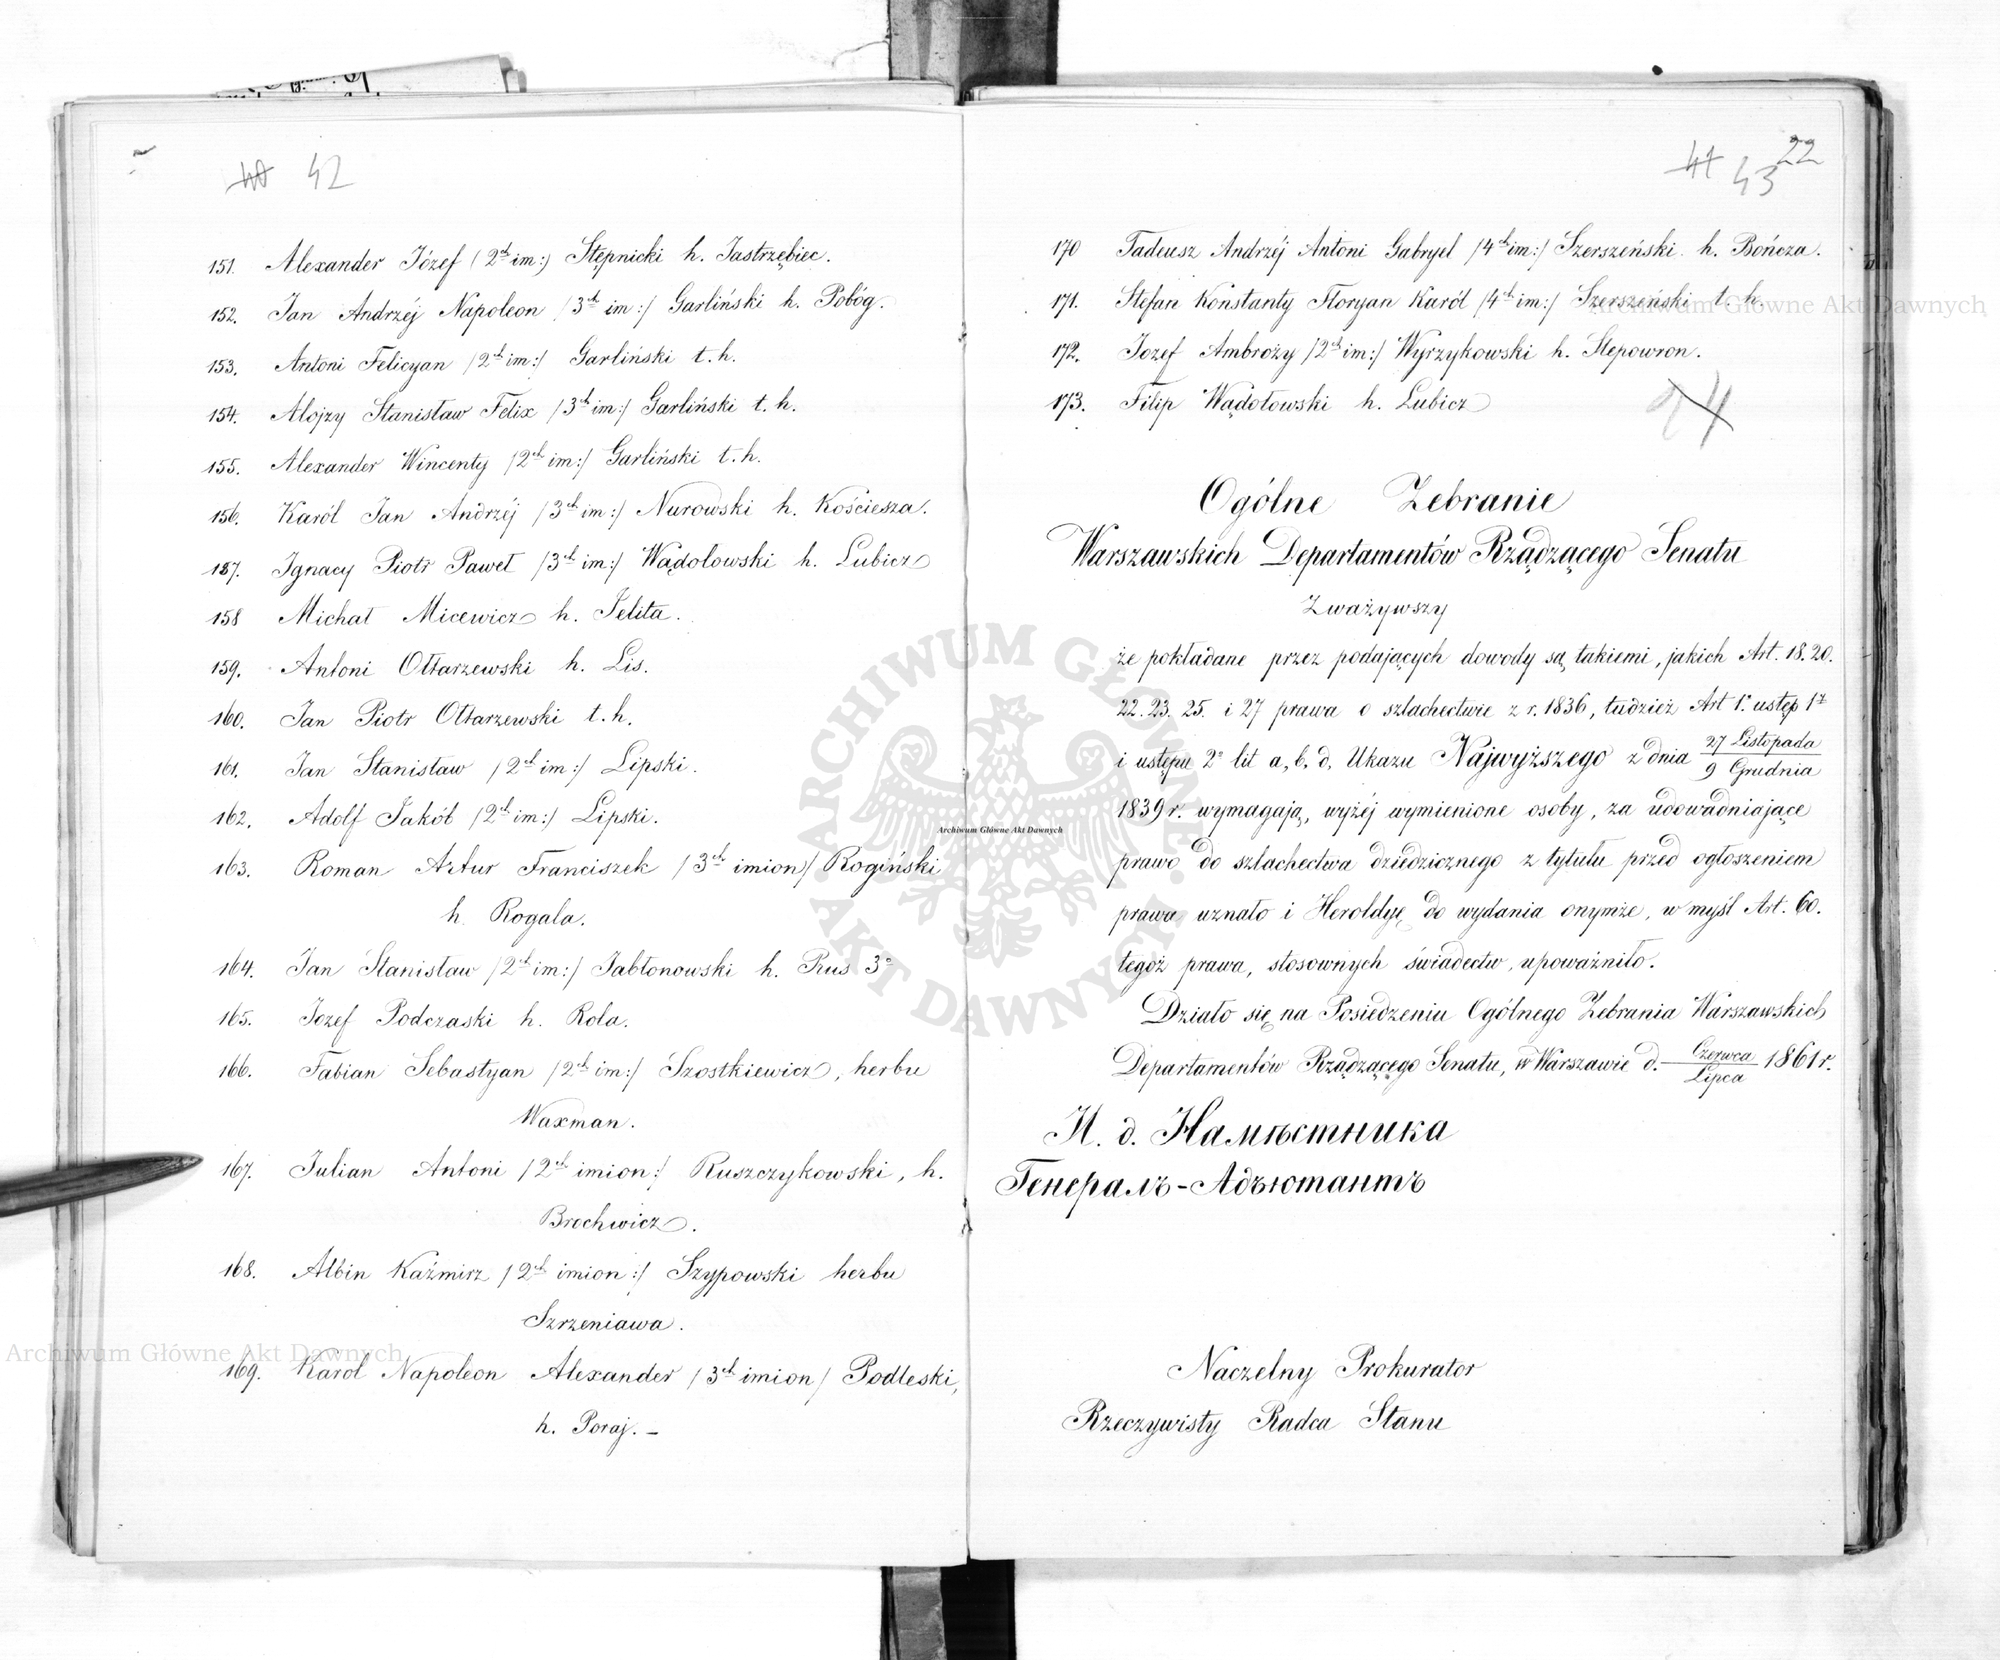 40 42
151. Alexander Józef (2ch im:) Stępnicki h. Jastrzębiec.
152. Jan Andrzéj Napoleon /3ch im:/ Garliński h. Pobóg.
153. Antoni Felicyan /2ch im:/ Garliński t. h.
154. Alojzy Stanisław Felix /3ch im:/ Garliński t. h.
155. Alexander Wincenty /2ch im:/ Garliński t. h.
156. Karól Jan Andrzéj /3ch im:/ Nurowski h. Kościesza.
157. Ignacy Piotr Paweł /3ch im:/ Wądołowski h. Lubicz
158 Michał Micewicz h. Jelita.
159. Antoni Ołtarzewski h. Lis.
160. Jan Piotr Ołtarzewski t. h.
161. Jan Stanisław /2ch im:/ Lipski.
162. Adolf Jakób /2ch im:/ Lipski.
163. Roman Artur Franciszek /3ch imion/ Rogiński
h. Rogala.
164. Jan Stanisław /2ch im:/ Jabłonowski h. Prus 3o
165. Jozef Podczaski h. Rola.
166. Fabian Sebastyan /2ch im:/ Szostkiewicz, herbu
Waxman.
167. Julian Antoni /2ch imion:/ Ruszczykowski, h.
Brochwicz.
168. Albin Kaźmirz /2ch imion:/ Szypowski herbu
Szrzeniawa.
169. Karol Napoleon Alexander /3ch imion/ Podleski,
h. Poraj. –
41 43 22
170 Tadeusz Andrzéj Antoni Gabryel /4ch im:/ Szerszeński. h. Bończa.
171. Stefan Konstanty Floryan Karól /4ch im:/ Szerszeński t. h.
172. Jozef Ambroży /2ch im:/ Wyrzykowski h. Slepowron.
173. Filip Wądołowski h. Lubicz
Ogólne Zebranie
Warszawskich Departamentów Rządzącego Senatu
Zważywszy
że pokładane przez podających dowody są takiemi, jakich Art. 18. 20.
22. 23. 25. i 27 prawa o szlachectwie z r. 1836, tudzież Art 1o ustęp 1y
i ustępu 2o lit a, b, d, Ukazu Najwyższego z dnia 27 Listopada / 9 Grudnia
1839 r. wymagają, wyżéj wymienione osoby, za udowadniające
prawo do szlachectwa dziedzicznego z tytułu przed ogłoszeniem
prawa uznało i Heroldyę do wydania onymże, w myśl Art. 60.
tegoż prawa, stosownych świadectw, upoważniło.
Działo się na Posiedzeniu Ogólnego Zebrania Warszawskich
Departamentów Rządzącego Senatu, w Warszawie d. Czerwca / Lipca 1861 r.
И. д. Намѣстника
Генералъ-Адъютантъ
Naczelny Prokurator
Rzeczywisty Radca Stanu
ARCHIWUM GŁÓWNE AKT DAWNYCH
Archiwum Główne Akt Dawnych
Archiwum Główne Akt Dawnych
Archiwum Główne Akt Dawnych